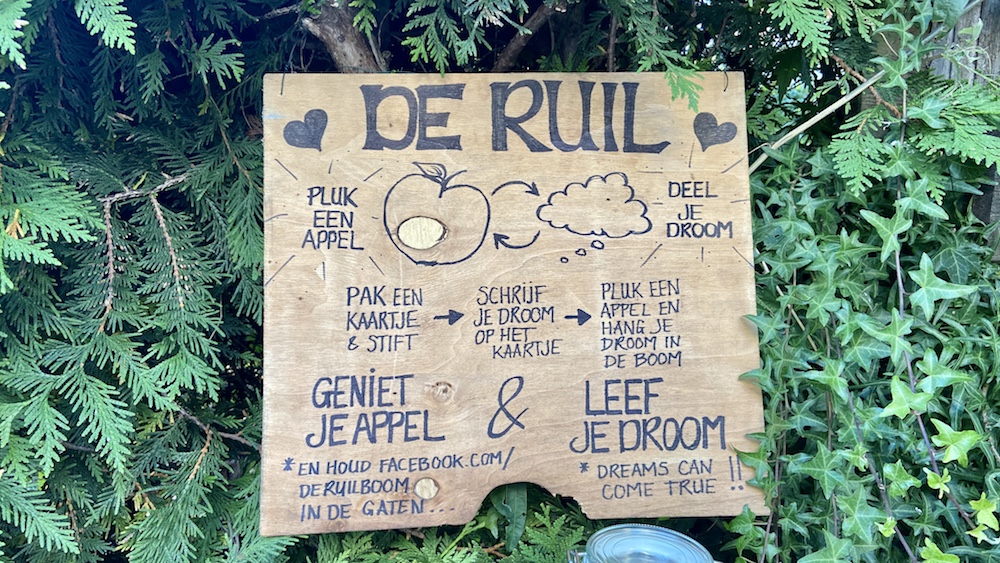 DE RUIL
PLUK
EEN
APPEL
DEEL
JE
DROOM
PAK EEN
KAARTJE
& STIFT
SCHRIJF
JE DROOM
OP HET
KAARTJE
PLUK EEN
APPEL EN
HANG JE
DROOM IN
DE BOOM
GENIET
JE APPEL
&
LEEF
JE DROOM
*EN HOUD FACEBOOK.COM/
DERUILBOOM
IN DE GATEN...
* DREAMS CAN
COME TRUE !!